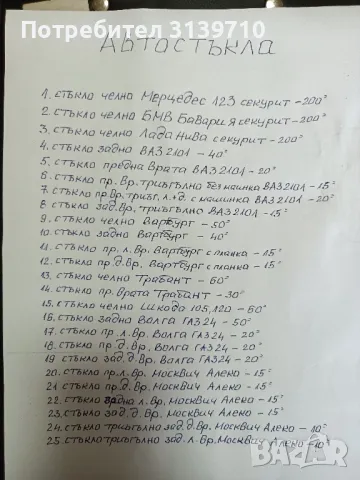 Потребител 3139710
АВТОСТЪКЛА
1. СТЪКЛО ЧЕЛНО МЕРЦЕДЕС 123 СЕКУРИТ - 200°
2. СТЪКЛО ЧЕЛНО БМВ БАВАРИЯ СЕКУРИТ - 200°
3. СТЪКЛО ЧЕЛНО ЛАДА НИВА СЕКУРИТ - 200°
4. СТЪКЛО ЗАДНО ВАЗ 2101 - 40°
5. СТЪКЛО ПРЕДНА ВРАТА ВАЗ 2101 - 20°
6. СТЪКЛО ПР. ВР. ТРИЪГЪЛНО БЕЗ МАШИНКА ВАЗ 2101 - 15°
7. СТЪКЛО ПР. ВР. ТРИЪГ. Л.+Д. С МАШИНКА ВАЗ 2101 - 20°
8. СТЪКЛО ЗАД. ВР. ТРИЪГЪЛНО ВАЗ 2101 - 15°
9. СТЪКЛО ЧЕЛНО ВАРТБУРГ - 50°
10. СТЪКЛО ЗАДНО ВАРТБУРГ - 40°
11. СТЪКЛО ПР. Л. ВР. ВАРТБУРГ С ПАНКА - 15°
12. СТЪКЛО ПР. Д. ВР. ВАРТБУРГ С ПАНКА - 15°
13. СТЪКЛО ЧЕЛНО ТРАБАНТ - 60°
14. СТЪКЛО ПР. ВРАТА ТРАБАНТ - 30°
15. СТЪКЛО ЧЕЛНО ШКОДА 105, 120 - 60°
16. СТЪКЛО ЗАДНО ВОЛГА ГАЗ 24 - 50°
17. СТЪКЛО ПР. Л. ВР. ВОЛГА ГАЗ 24 - 20°
18. СТЪКЛО ПР. Д. ВР. ВОЛГА ГАЗ 24 - 20°
19 СТЪКЛО ЗАД. Д. ВР. ВОЛГА ГАЗ 24 - 20°
20. СТЪКЛО ПР. Л. ВР. МОСКВИЧ АЛЕКО - 15°
21 СТЪКЛО ПР. Д. ВР. МОСКВИЧ АЛЕКО - 15°
22. СТЪКЛО ЗАДНО Л. ВР. МОСКВИЧ АЛЕКО - 15°
23. СТЪКЛО ЗАД. Д. ВР. МОСКВИЧ АЛЕКО - 15°
24. СТЪКЛО ТРИЪГЪЛНО ЗАД. Д. ВР. МОСКВИЧ АЛЕКО - 10°
25. СТЪКЛО ТРИЪГЪЛНО ЗАД. Л. ВР. МОСКВИЧ АЛЕКО - 10°
bazar